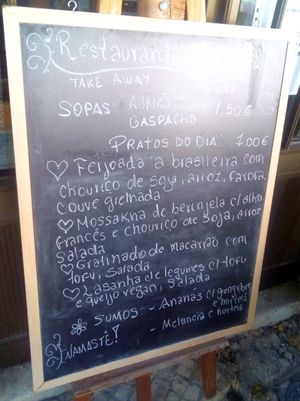 Restaurant
TAKE AWAY
SOPAS: AGRIÃO 1,50€
GASPACHO
PRATOS DO DIA: 7.00€
♡ FEIJOADA à brasileira com
chouriço de soja, arroz, farofa,
couve grelhada
♡ Mossakna de berinjela c/ alho
francês e chouriço de soja, arroz
salada
♡ Gratinado de macarrão com
tofu, salada
♡ Lasanha de legumes c/ tofu
e queijo vegan, salada
SUMOS: - Ananás c/ gengibre
e hortelã
- Melancia e hortelã
NAMASTÊ!